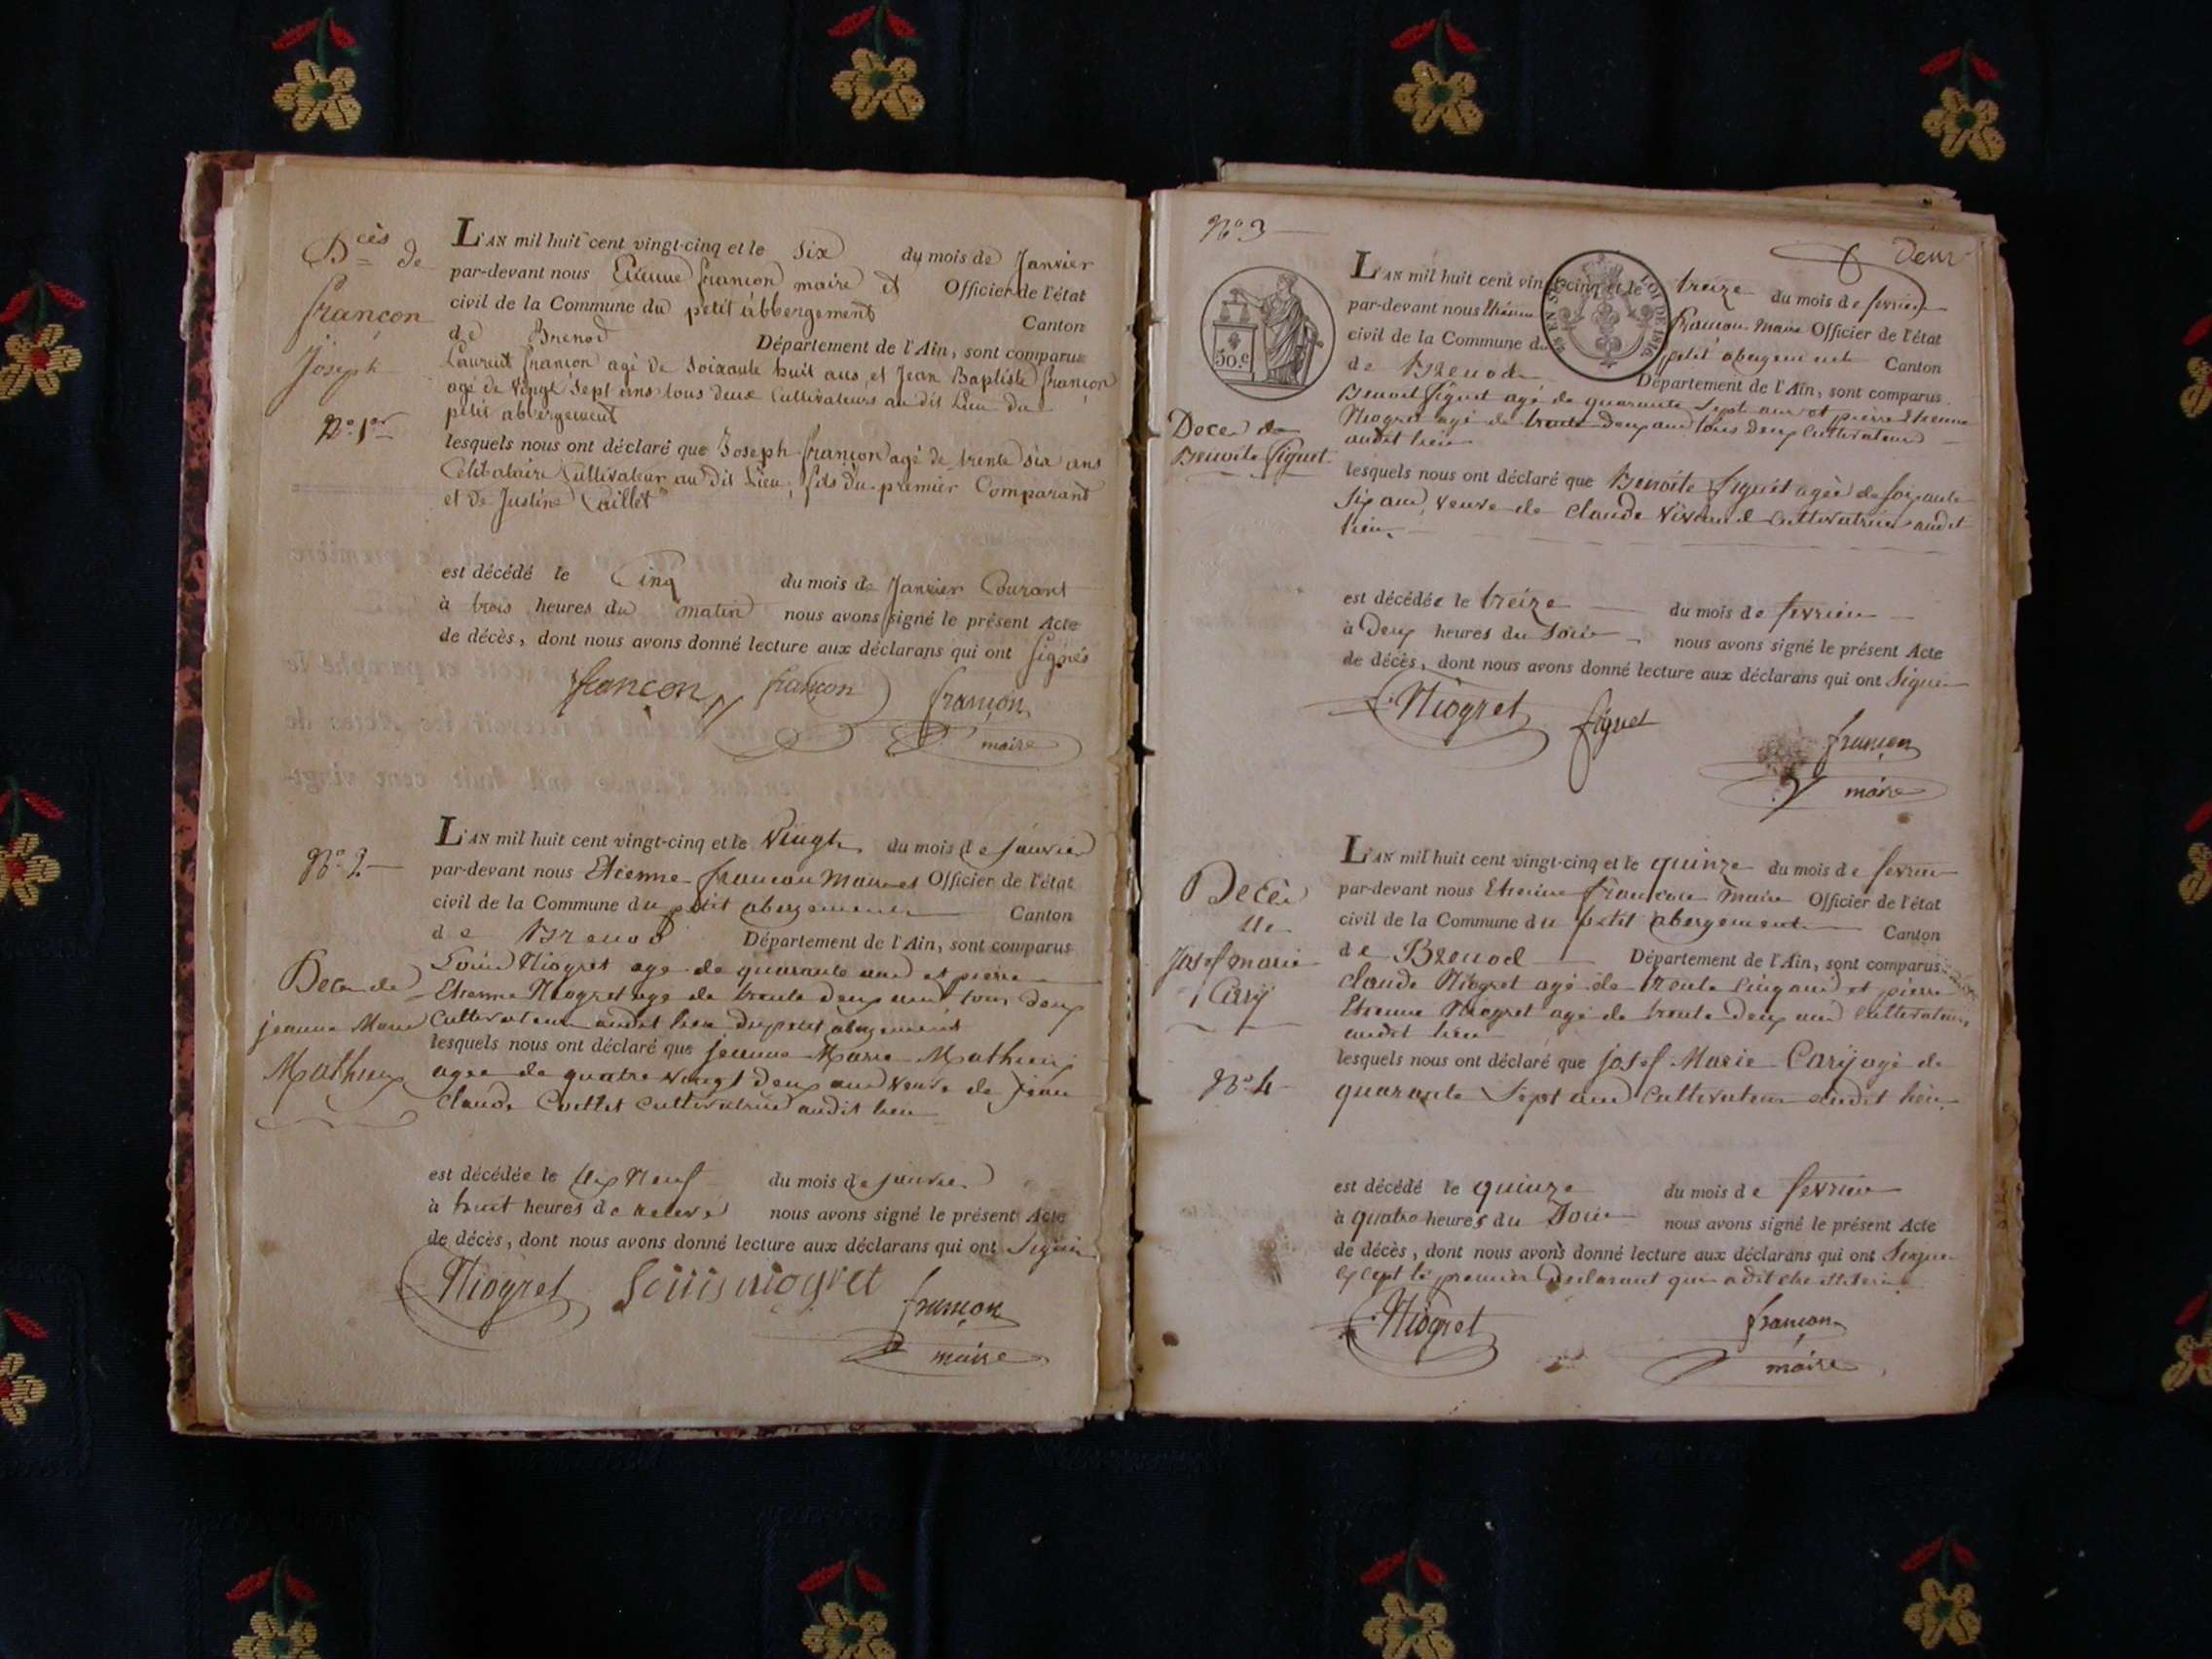 Dcès de
françon
Joseph
No. 1er
L'AN mil huit cent vingt-cinq et le Six du mois de Janvier
par-devant nous Etienne françon maire et Officier de l'état
civil de la Commune du petit abbergement Canton
de Brenod Département de l'Ain, sont comparus
Laurent françon agé de Soixante huit ans, et Jean Baptiste françon
agé de vingt Sept ans tous deux Cultivateurs au dit Lieu du
petit abbergement
lesquels nous ont déclaré que Joseph françon agé de trente six ans
Célibataire Cultivateur au dit Lieu, fils du premier Comparant
et de Justine Caillet
est décédé le Cinq du mois de Janvier Courant
à trois heures du matin nous avons signé le présent Acte
de décès, dont nous avons donné lecture aux déclarans qui ont Signés
francon françon françon
maire
No. 2
Deces de
jeanne Marie
Mathieu
L'AN mil huit cent vingt-cinq et le Vingt du mois de janvier
par-devant nous Etienne francon Maire et Officier de l'état
civil de la Commune du petit abergement Canton
de Brenod Département de l'Ain, sont comparus
Louis Niogret age de quarante ans et pierre
Etienne Niogret age de trente deux ans tous deux
Cultivateurs audit lieu du petit abergement
lesquels nous ont déclaré que jeanne Marie Mathieu
agee de quatre vingt deux ans veuve de Jean
Claude Cultivatrice audit lieu
est décédée le dix Neuf du mois de janvier
à huit heures de nous avons signé le présent Acte
de décès, dont nous avons donné lecture aux déclarans qui ont Signé
Niogret Louis niogret françon
maire
No 3
Deux
50.c
EN SUS
LOI DE 1816.
Deces de
Benoite Figuet
L'AN mil huit cent vingt-cinq et le treize du mois de fevrier
par-devant nous Etienne francon Maire Officier de l'état
civil de la Commune du petit abergement Canton
de Brenod Département de l'Ain, sont comparus
Benoit Figuet agé de quarante Sept ans et pierre Etienne
Niogret agé de trente deux ans tous deux Cultivateurs
audit lieu
lesquels nous ont déclaré que Benoite Figuet agée de soixante
six ans, veuve de Claude Cultivatrice audit
lieu.
est décédée le treize du mois de fevrier
à deux heures du Soir nous avons signé le présent Acte
de décès, dont nous avons donné lecture aux déclarans qui ont Signé
Niogret figuet françon
maire
Décès
de
Josef marie
Carij
No 4
L'AN mil huit cent vingt-cinq et le quinze du mois de fevrier
par-devant nous Etienne francon Maire Officier de l'état
civil de la Commune du petit abergement Canton
de Brenod Département de l'Ain, sont comparus
Claude Niogret agé de trente Cinq ans et pierre
Etienne Niogret agé de trente deux ans Cultivateurs
audit lieu
lesquels nous ont déclaré que josef Marie Carij agé de
quarante Sept ans Cultivateur audit lieu
est décédé le quinze du mois de fevrier
à quatre heures du Soir nous avons signé le présent Acte
de décès, dont nous avons donné lecture aux déclarans qui ont Signé
Except le premier Declarant qui a dit
Niogret françon
maire